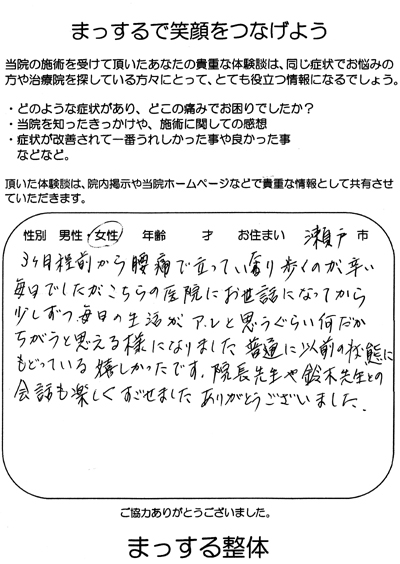 まっするで笑顔をつなげよう
当院の施術を受けて頂いたあなたの貴重な体験談は、同じ症状でお悩みの
方や治療院を探している方々にとって、とても役立つ情報になるでしょう。
・どのような症状があり、どこの痛みでお困りでしたか？
・当院を知ったきっかけや、施術に関しての感想
・症状が改善されて一番うれしかった事や良かった事
などなど。
頂いた体験談は、院内掲示や当院ホームページなどで貴重な情報として共有させ
ていただきます。
性別 男性・女性 年齢 才 お住まい 瀬戸 市
3ヶ月程前から腰痛で立っていたり歩くのが辛い
毎日でしたがこちらの医院にお世話になってから
少しずつ毎日の生活が、アレと思うぐらい何だか
ちがうと思える様になりました 普通に以前の状態に
もどっている 嬉しかったです。院長先生や鈴木先生との
会話も楽しくすごせました ありがとうございました。
ご協力ありがとうございました。
まっする整体